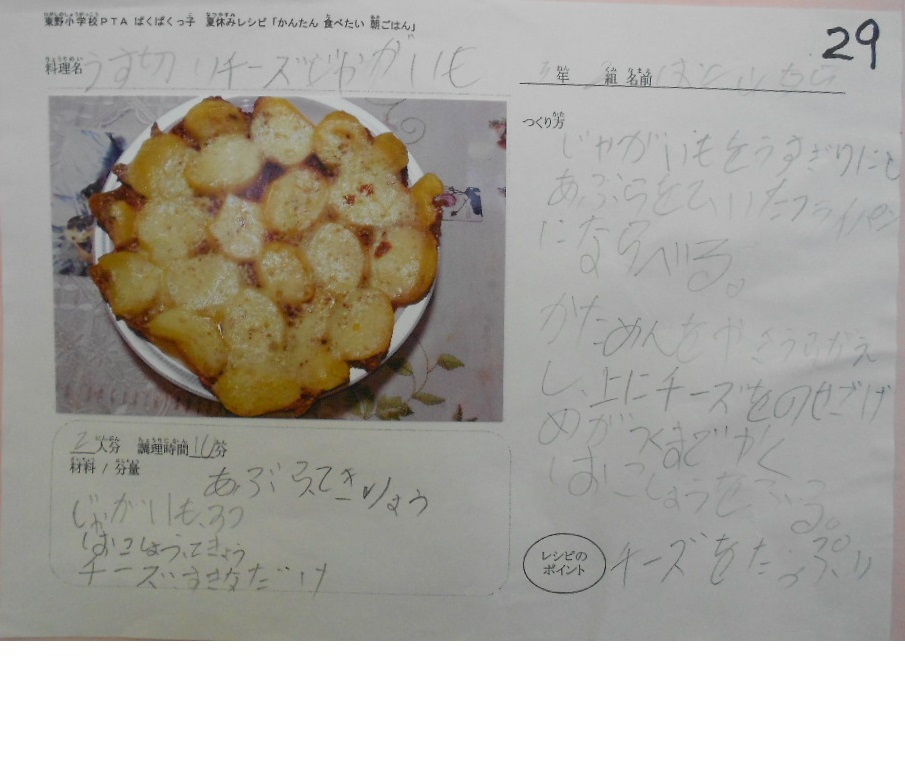 東野小学校PTA ぱくぱくっ子 夏休みレシピ「かんたん 食べたい 朝ごはん」
29
料理名 うす切りチーズじゃがいも
年 組 名前
2人分 調理時間10分
材料 / 分量
あぶらてきりょう
じゃがいも
しおこしょう、てきりょう
チーズすきなだけ
つくり方
じゃがいもをうすぎりにし
あぶらをしいたフライパン
にならべる。
かためんをやきうらがえ
し、上にチーズをのせこげ
めがつくまでやく
しおこしょうをふる。
レシピの
ポイント
チーズをたっぷり